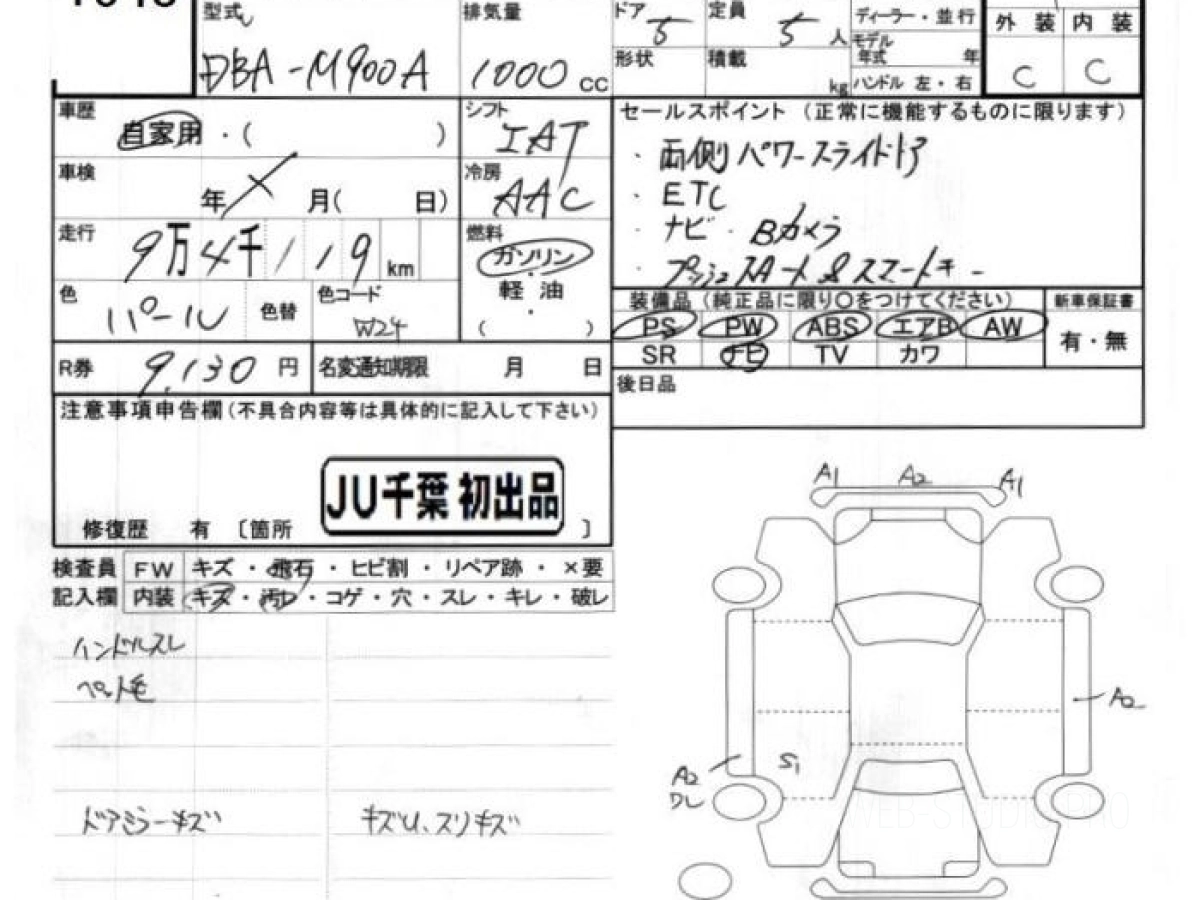 型式
DBA-M900A
排気量
1000 cc
ドア 5
形状
定員 5 人
積載 kg
ディーラー・並行
モデル年式 年
ハンドル 左・右
外装 内装
C C
車歴 自家用・( )
シフト IAT
車検 年 月( 日)
冷房 AAC
走行 9万4千119 km
燃料 ガソリン・軽油 ( )
色 パール 色替
色コード W24
R券 9,130 円
名変通知期限 月 日
セールスポイント(正常に機能するものに限ります)
・両側パワースライドドア
・ETC
・ナビ・Bカメラ
・プッシュスタート&スマートキー
装備品(純正品に限り○をつけてください)
新車保証書
PS PW ABS エアB AW
SR ナビ TV カワ
有・無
後日品
注意事項申告欄(不具合内容等は具体的に記入して下さい)
JU千葉 初出品
修復歴 有 〔箇所 〕
検査員記入欄
FW キズ・飛石・ヒビ割・リペア跡・×要
内装 キズ・汚レ・コゲ・穴・スレ・キレ・破レ
ハンドルスレ
ペット毛
ドアミラーキズ
キズU、スリキズ
A1 A2 A1
A2
S1
A2
ワレ
WEB-STUDIO PRO